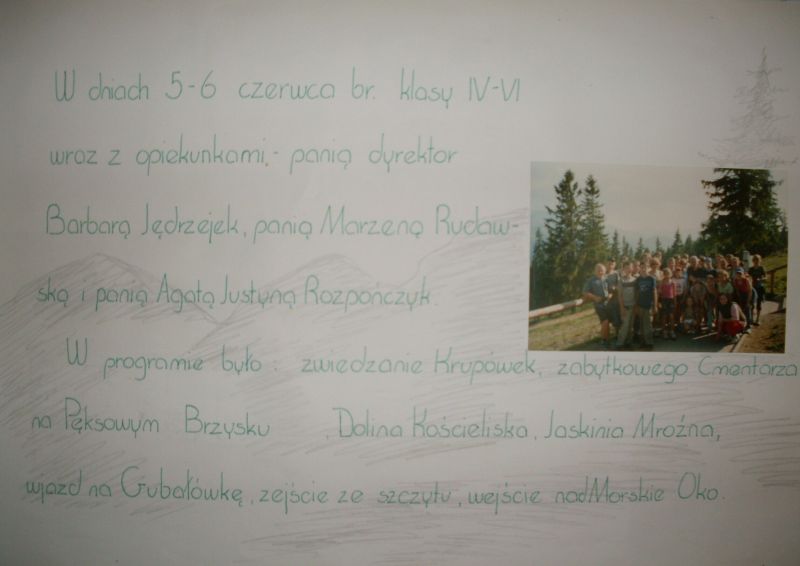 W dniach 5-6 czerwca br. klasy IV-VI
wraz z opiekunkami, - panią dyrektor
Barbarą Jędrzejek, panią Marzeną Rudaw-
ską i panią Agatą Justyną Rozpończyk.
W programie było : zwiedzanie Krupówek, zabytkowego Cmentarza
na Pęksowym Brzysku , Dolina Kościeliska, Jaskinia Mroźna,
wjazd na Gubałówkę, zejście ze szczytu, wejście nad Morskie Oko.